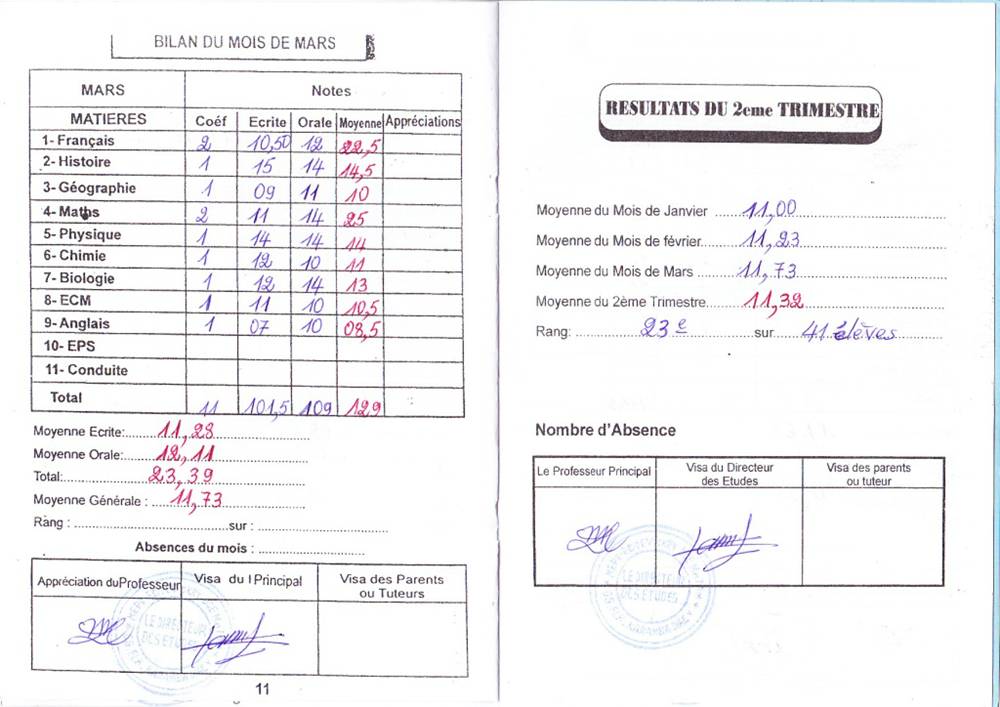 BILAN DU MOIS DE MARS
MARS Notes
MATIERES Coéf Ecrite Orale Moyenne Appréciations
1- Français 2 10,50 12 22,5
2- Histoire 1 15 14 14,5
3- Géographie 1 09 11 10
4- Maths 2 11 14 25
5- Physique 1 14 14 14
6- Chimie 1 12 10 11
7- Biologie 1 12 14 13
8- ECM 1 11 10 10,5
9- Anglais 1 07 10 08,5
10- EPS
11- Conduite
Total 11 101,5 109 129
Moyenne Ecrite:........11,28
Moyenne Orale:........12,11
Total:........23,39
Moyenne Générale :........11,73
Rang :........sur :........
Absences du mois :........
Appréciation du Professeur Visa du l Principal Visa des Parents ou Tuteurs
LE DIRECTEUR
DES ETUDES
11
RESULTATS DU 2eme TRIMESTRE
Moyenne du Mois de Janvier ........11,00
Moyenne du Mois de février........11,23
Moyenne du Mois de Mars ........11,73
Moyenne du 2ème Trimestre........11,32
Rang: ........23e........sur........41 élèves
Nombre d'Absence
Le Professeur Principal Visa du Directeur des Etudes Visa des parents ou tuteur
LE DIRECTEUR
DES ETUDES